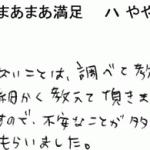 まあまあ満足　ハ やや
ないことは、調べて教
細かく教えて頂きま
すので、不安なことが
もらいました。